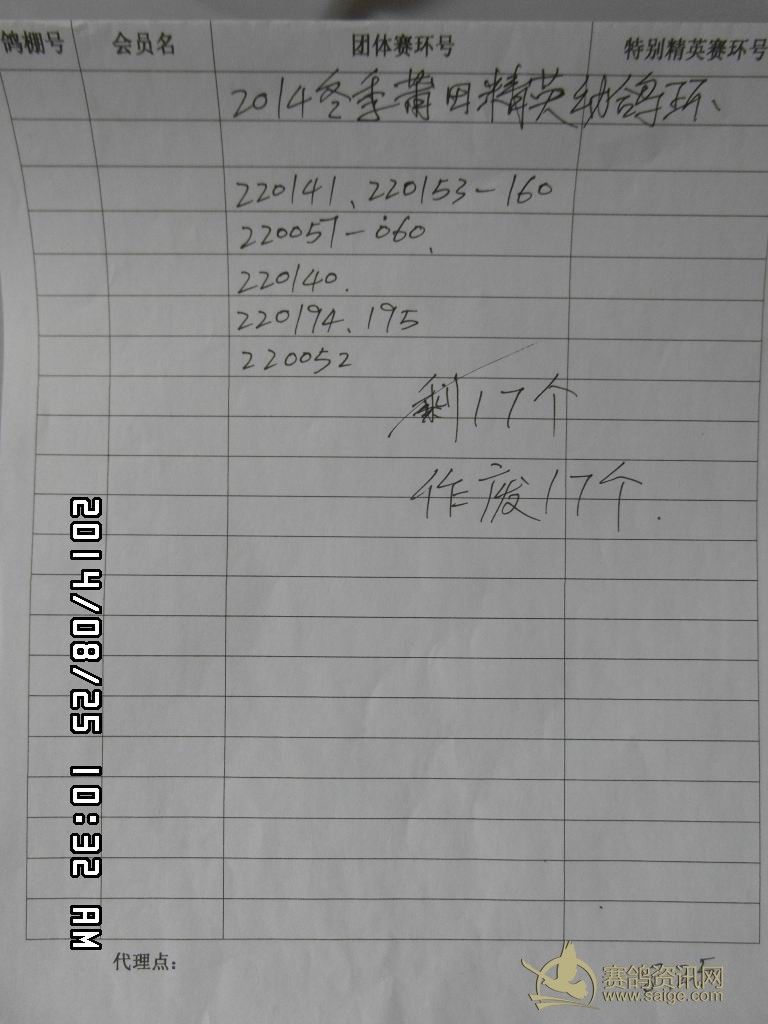 鸽棚号 会员名 团体赛环号 特别精英赛环号
2014冬季莆田精英幼鸽环、
220141、220153-160
220057-060、
220140.
220194、195
220052
剩17个
作废17个.
2014/08/25 10:32 AM
代理点:
赛鸽资讯网
www.saige.com